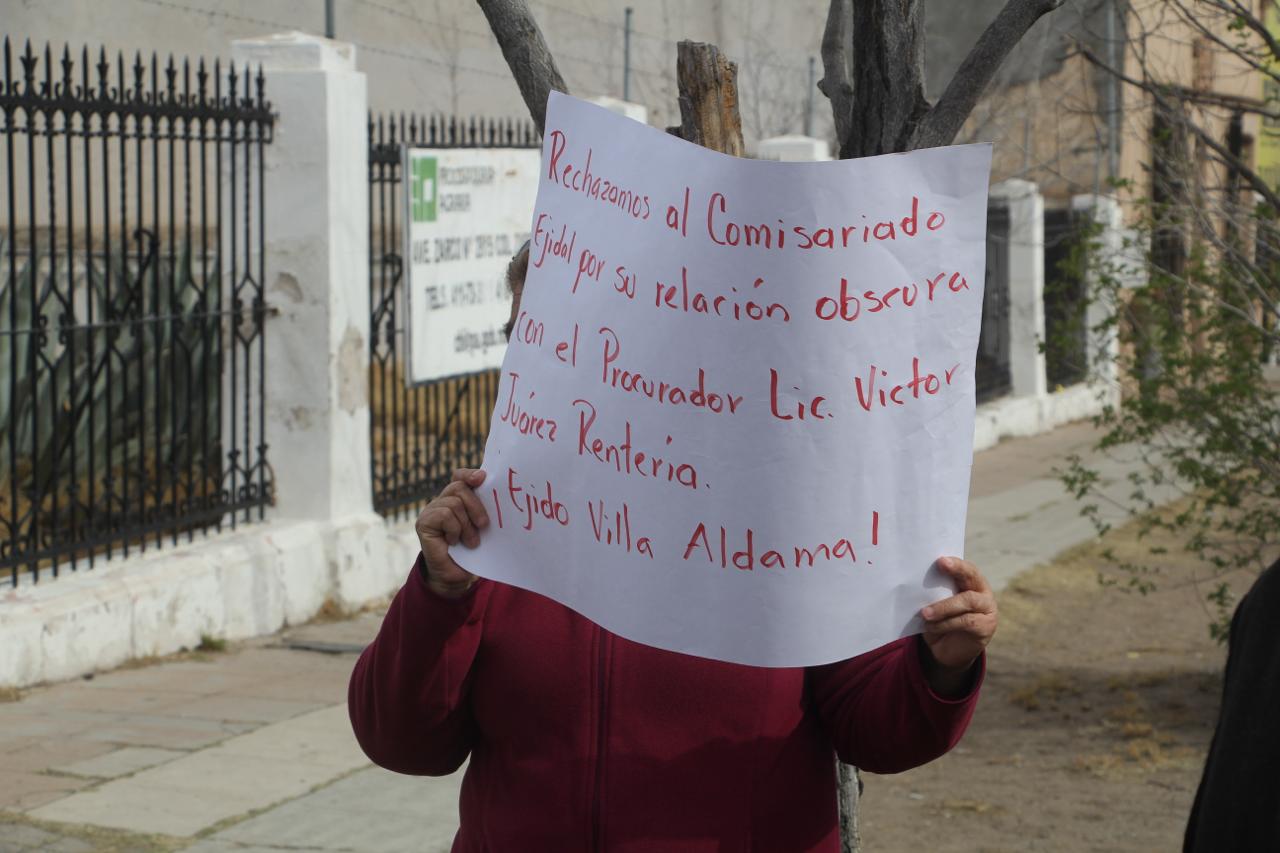 PROCURADURIA
AGRARIA
AVE. ZARCO Nº
TELS.
Rechazamos al Comisariado
Ejidal por su relación obscura
con el Procurador Lic. Victor
Juárez Rentería.
¡Ejido Villa Aldama!